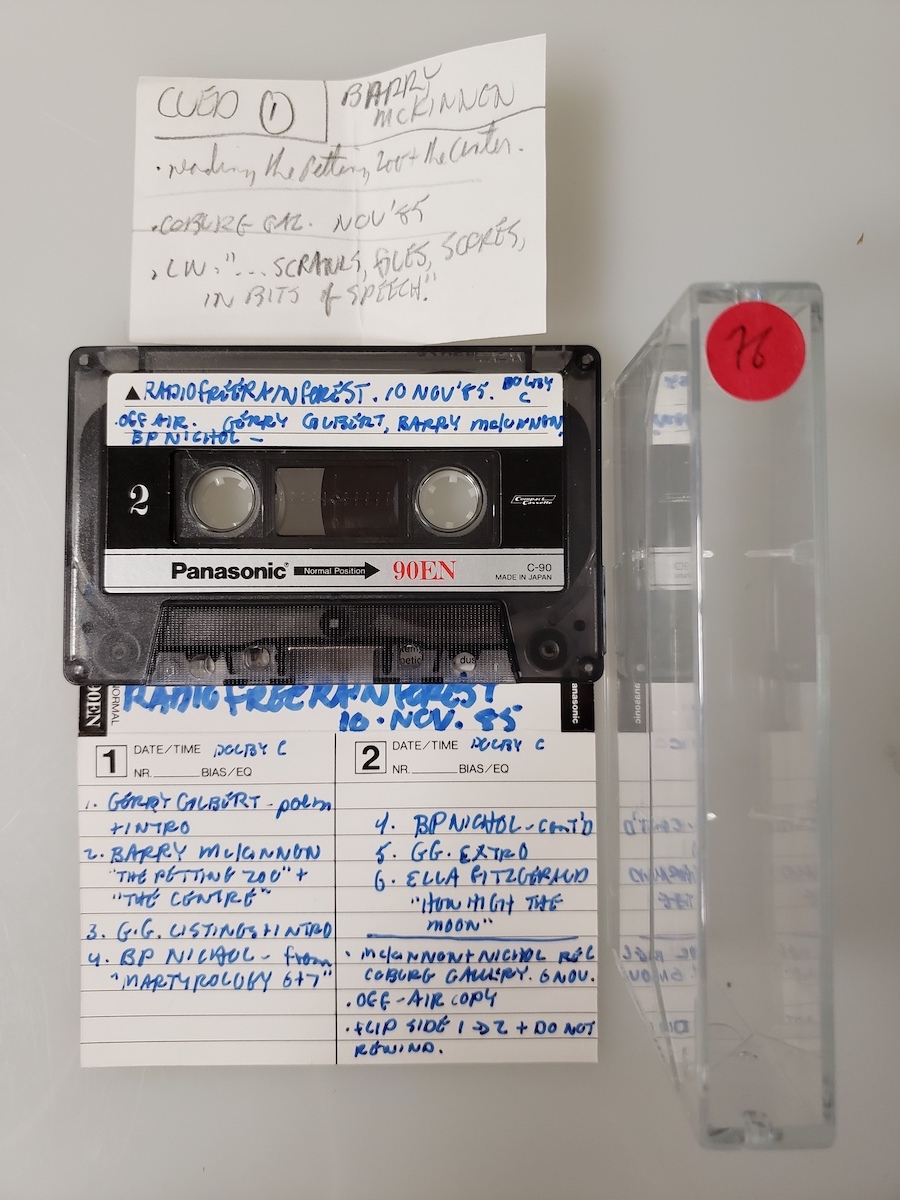 CUED 1
BARRY
McKINNON
· reading the Petting Zoo + the Center.
· COBURG GAL. NOV '85
"... SCRAWLS, FILES, SCORES,
IN BITS of SPEECH."
76
▲ RADIOFREERAINFOREST. 10 NOV '85. DOLBY
C
· OFF AIR. GERRY GILBERT, BARRY McKINNON
BP NICHOL –
2
Compact
Cassette
Panasonic Normal Position 90EN C-90
MADE IN JAPAN
90EN
NORMAL
RADIOFREERAINFOREST
10 · NOV. 85
Panasonic
1 DATE/TIME DOLBY C
NR. BIAS/EQ
1. GERRY GILBERT - poem
+ INTRO
2. BARRY McKINNON
"THE PETTING ZOO" +
"THE CENTRE"
3. G.G. LISTINGS + INTRO
4. BP NICHOL - from
"MARTYROLOGY 6+7"
2 DATE/TIME DOLBY C
NR. BIAS/EQ
4. BP NICHOL - CONT'D
5. GG. EXTRO
6. ELLA FITZGERALD
"HOW HIGH THE
MOON"
· McKINNON + NICHOL REC
COBURG GALLERY. 6 NOV.
· OFF-AIR COPY
· FLIP SIDE 1 → 2 + DO NOT
REWIND.